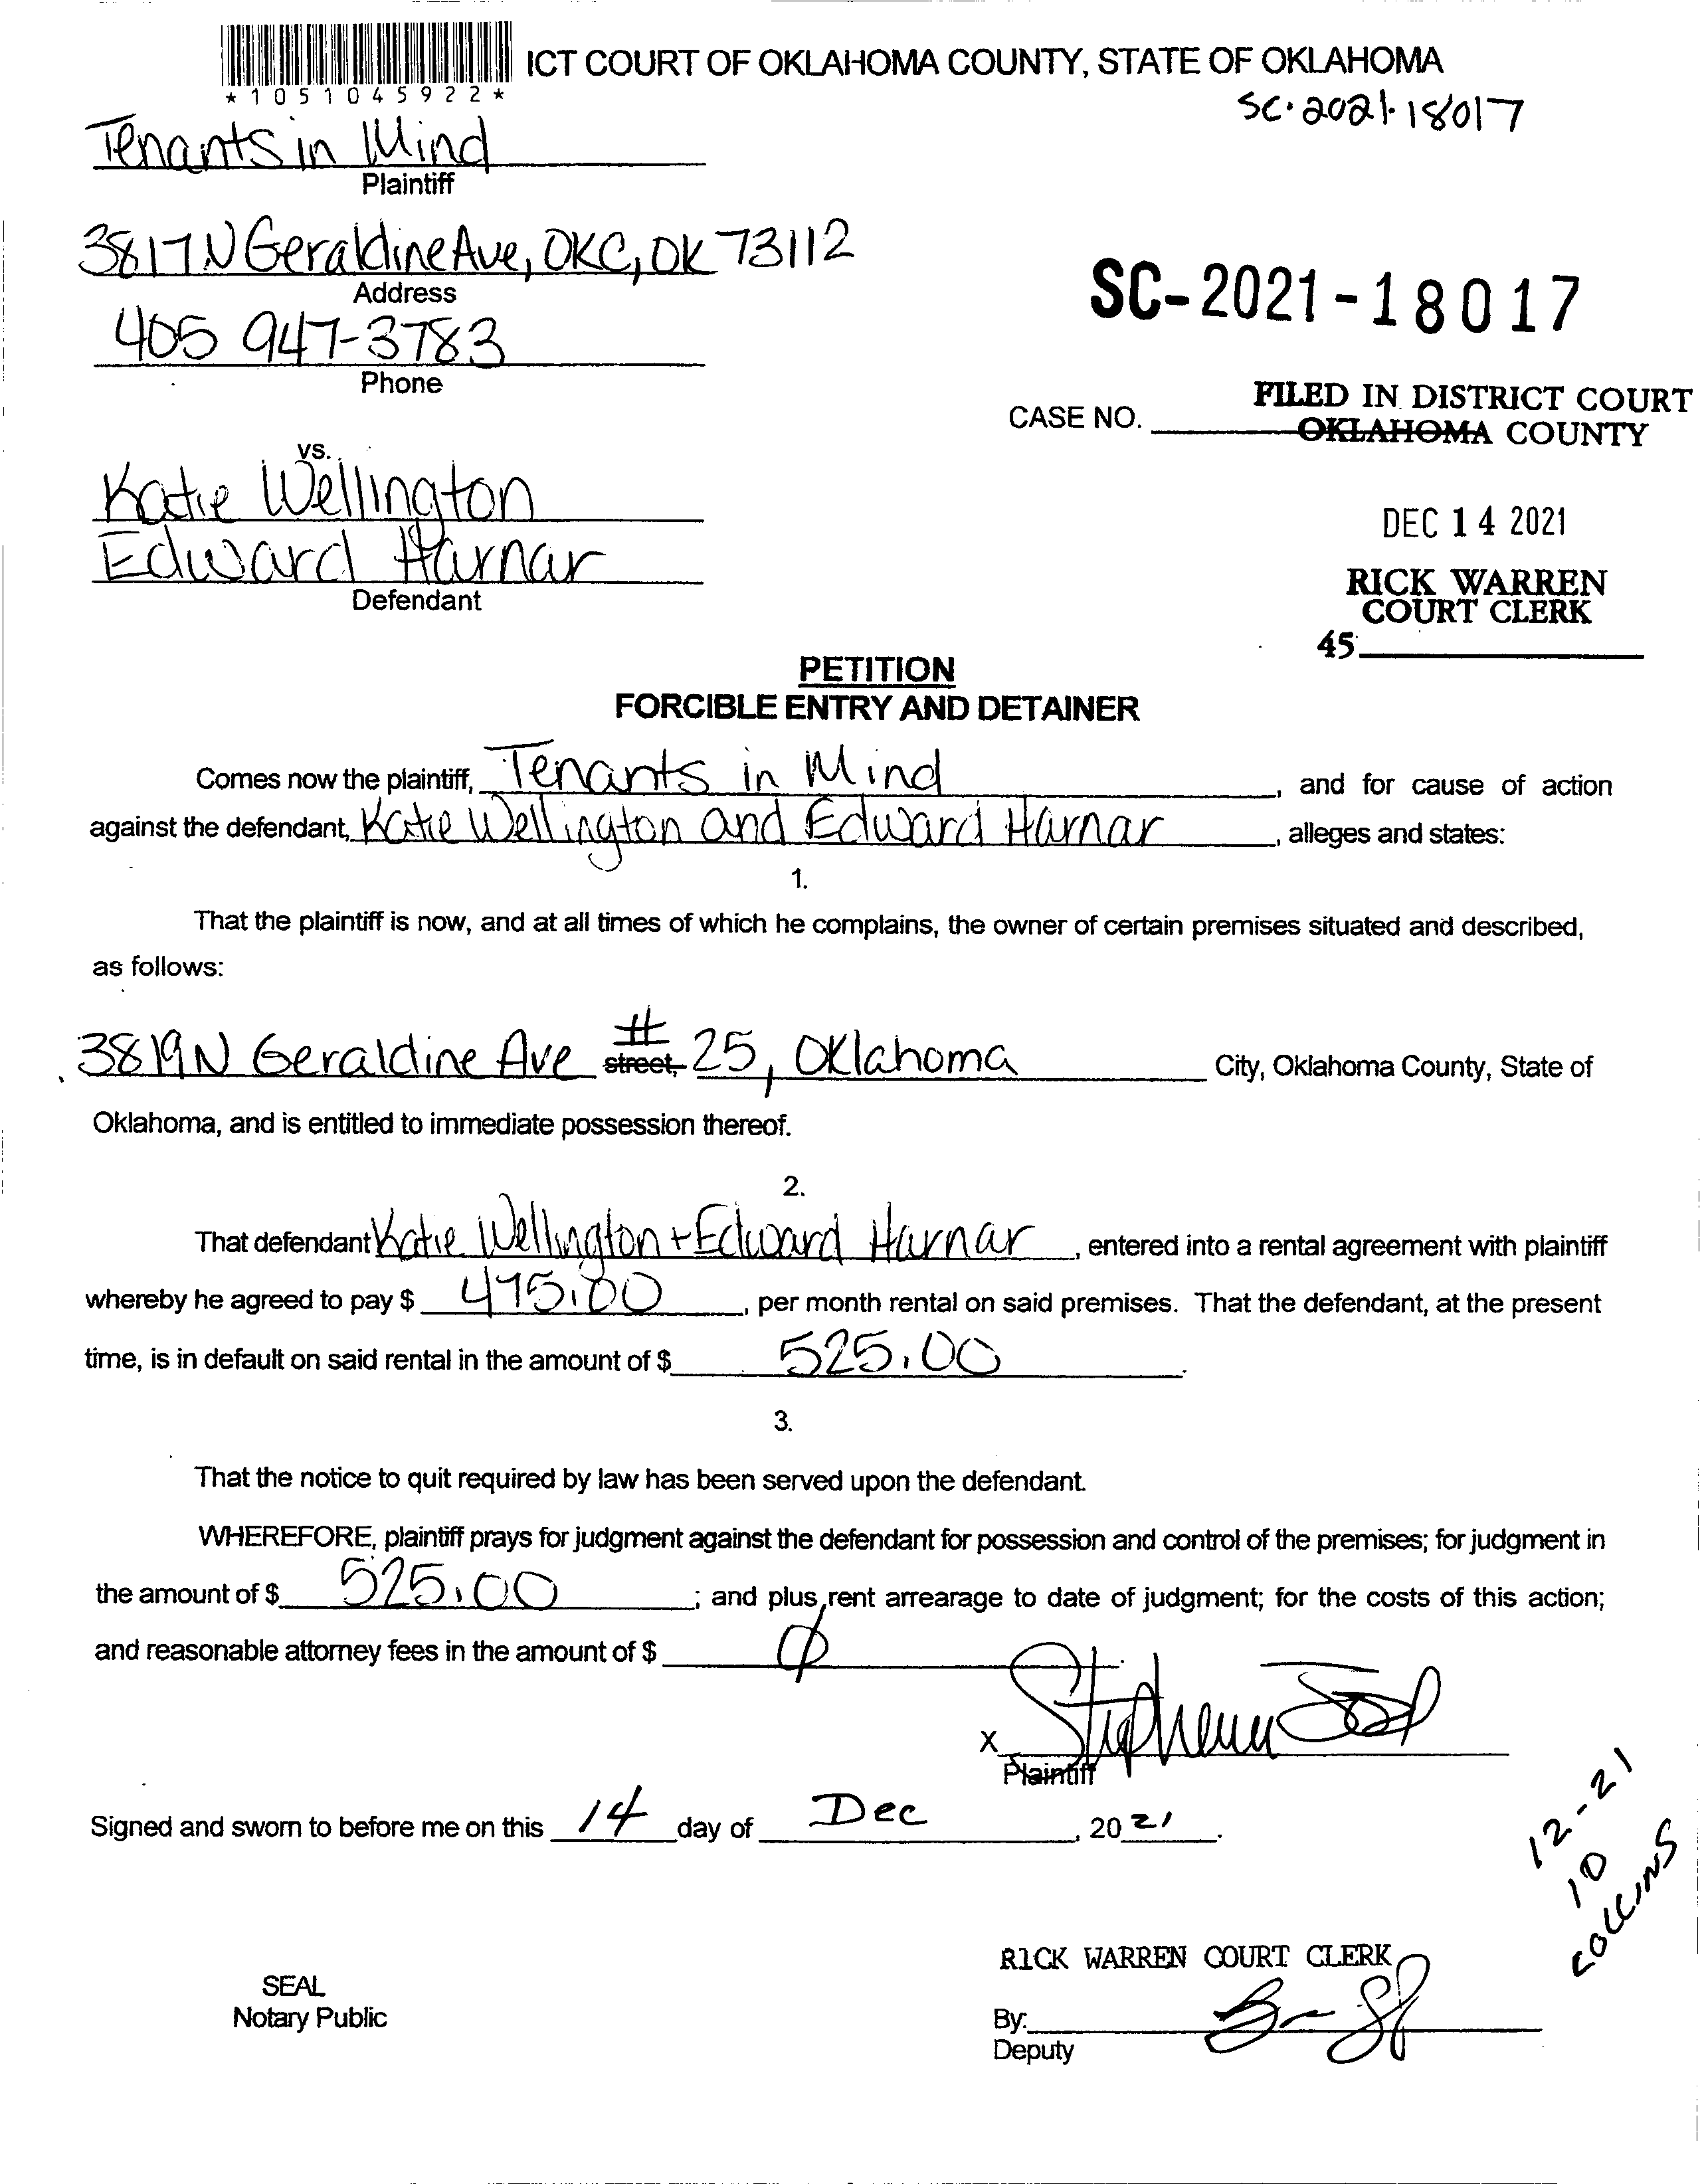 ICT COURT OF OKLAHOMA COUNTY, STATE OF OKLAHOMA
*1051045922*
SC-2021-18017
Tenants in Mind
Plaintiff
3817 N Geraldine Ave, OKC, OK 73112
Address
SC-2021-18017
405 947-3783
Phone
FILED IN DISTRICT COURT
CASE NO.
OKLAHOMA COUNTY
vs.
Katie Wellington
DEC 14 2021
Edward Harnar
Defendant
RICK WARREN
COURT CLERK
45
PETITION
FORCIBLE ENTRY AND DETAINER
Comes now the plaintiff, Tenants in Mind, and for cause of action
against the defendant, Katie Wellington and Edward Harnar, alleges and states:
1.
That the plaintiff is now, and at all times of which he complains, the owner of certain premises situated and described,
as follows:
3819 N Geraldine Ave # street, 25, Oklahoma City, Oklahoma County, State of
Oklahoma, and is entitled to immediate possession thereof.
2.
That defendant Katie Wellington + Edward Harnar, entered into a rental agreement with plaintiff
whereby he agreed to pay $ 475.00, per month rental on said premises. That the defendant, at the present
time, is in default on said rental in the amount of $ 525.00.
3.
That the notice to quit required by law has been served upon the defendant.
WHEREFORE, plaintiff prays for judgment against the defendant for possession and control of the premises; for judgment in
the amount of $ 525.00; and plus rent arrearage to date of judgment; for the costs of this action;
and reasonable attorney fees in the amount of $ 0
X
Plaintiff
Signed and sworn to before me on this 14 day of Dec, 2021.
12-21
10
COLLINS
RICK WARREN COURT CLERK
SEAL
Notary Public
By:
Deputy